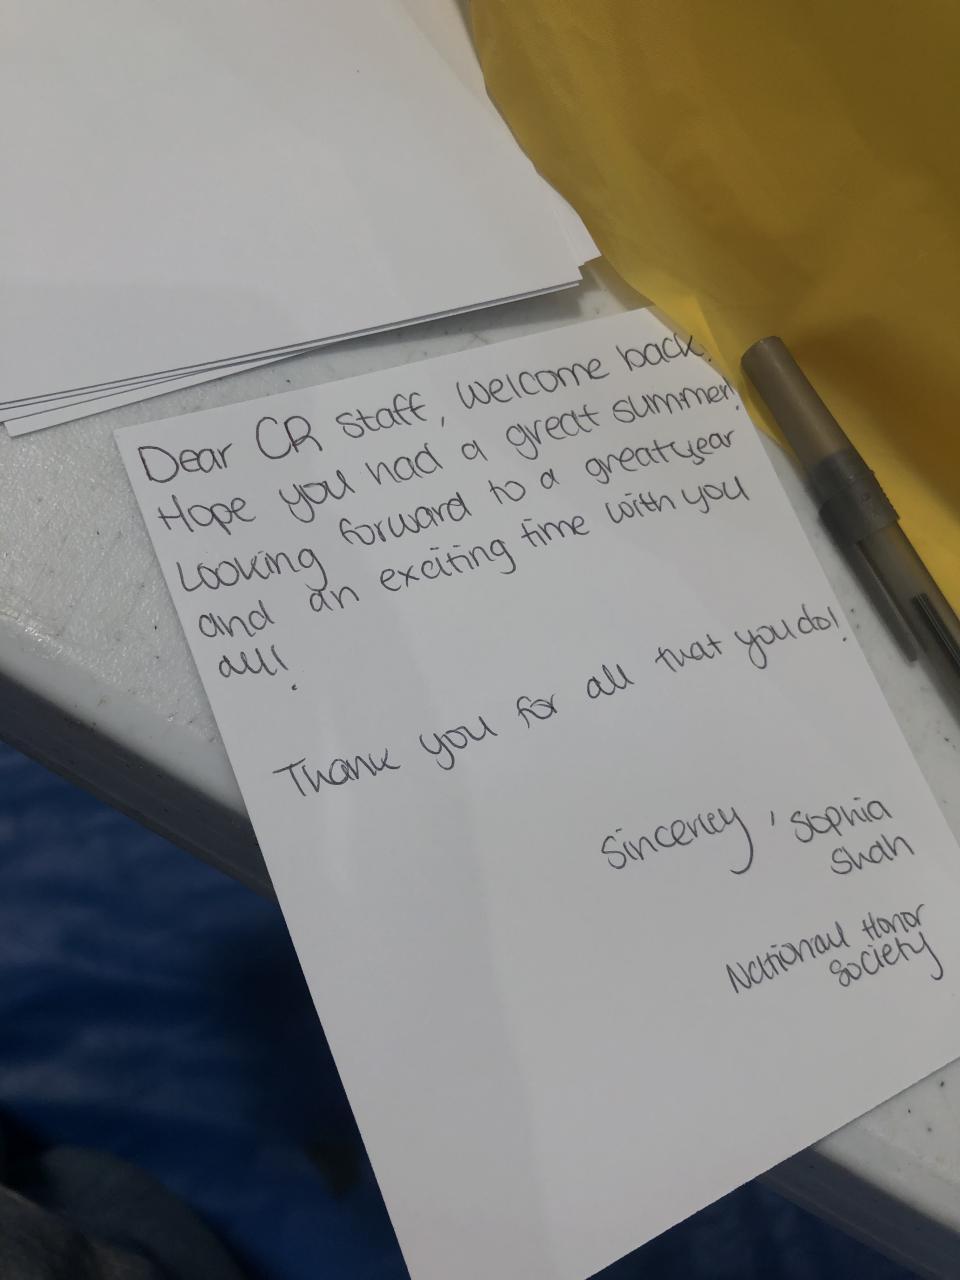 Dear CR staff, Welcome back!
Hope you had a great summer!
Looking forward to a great year
and an exciting time with you
all!
Thank you for all that you do!
Sincerley, Sophia
Shah
National Honor
Society